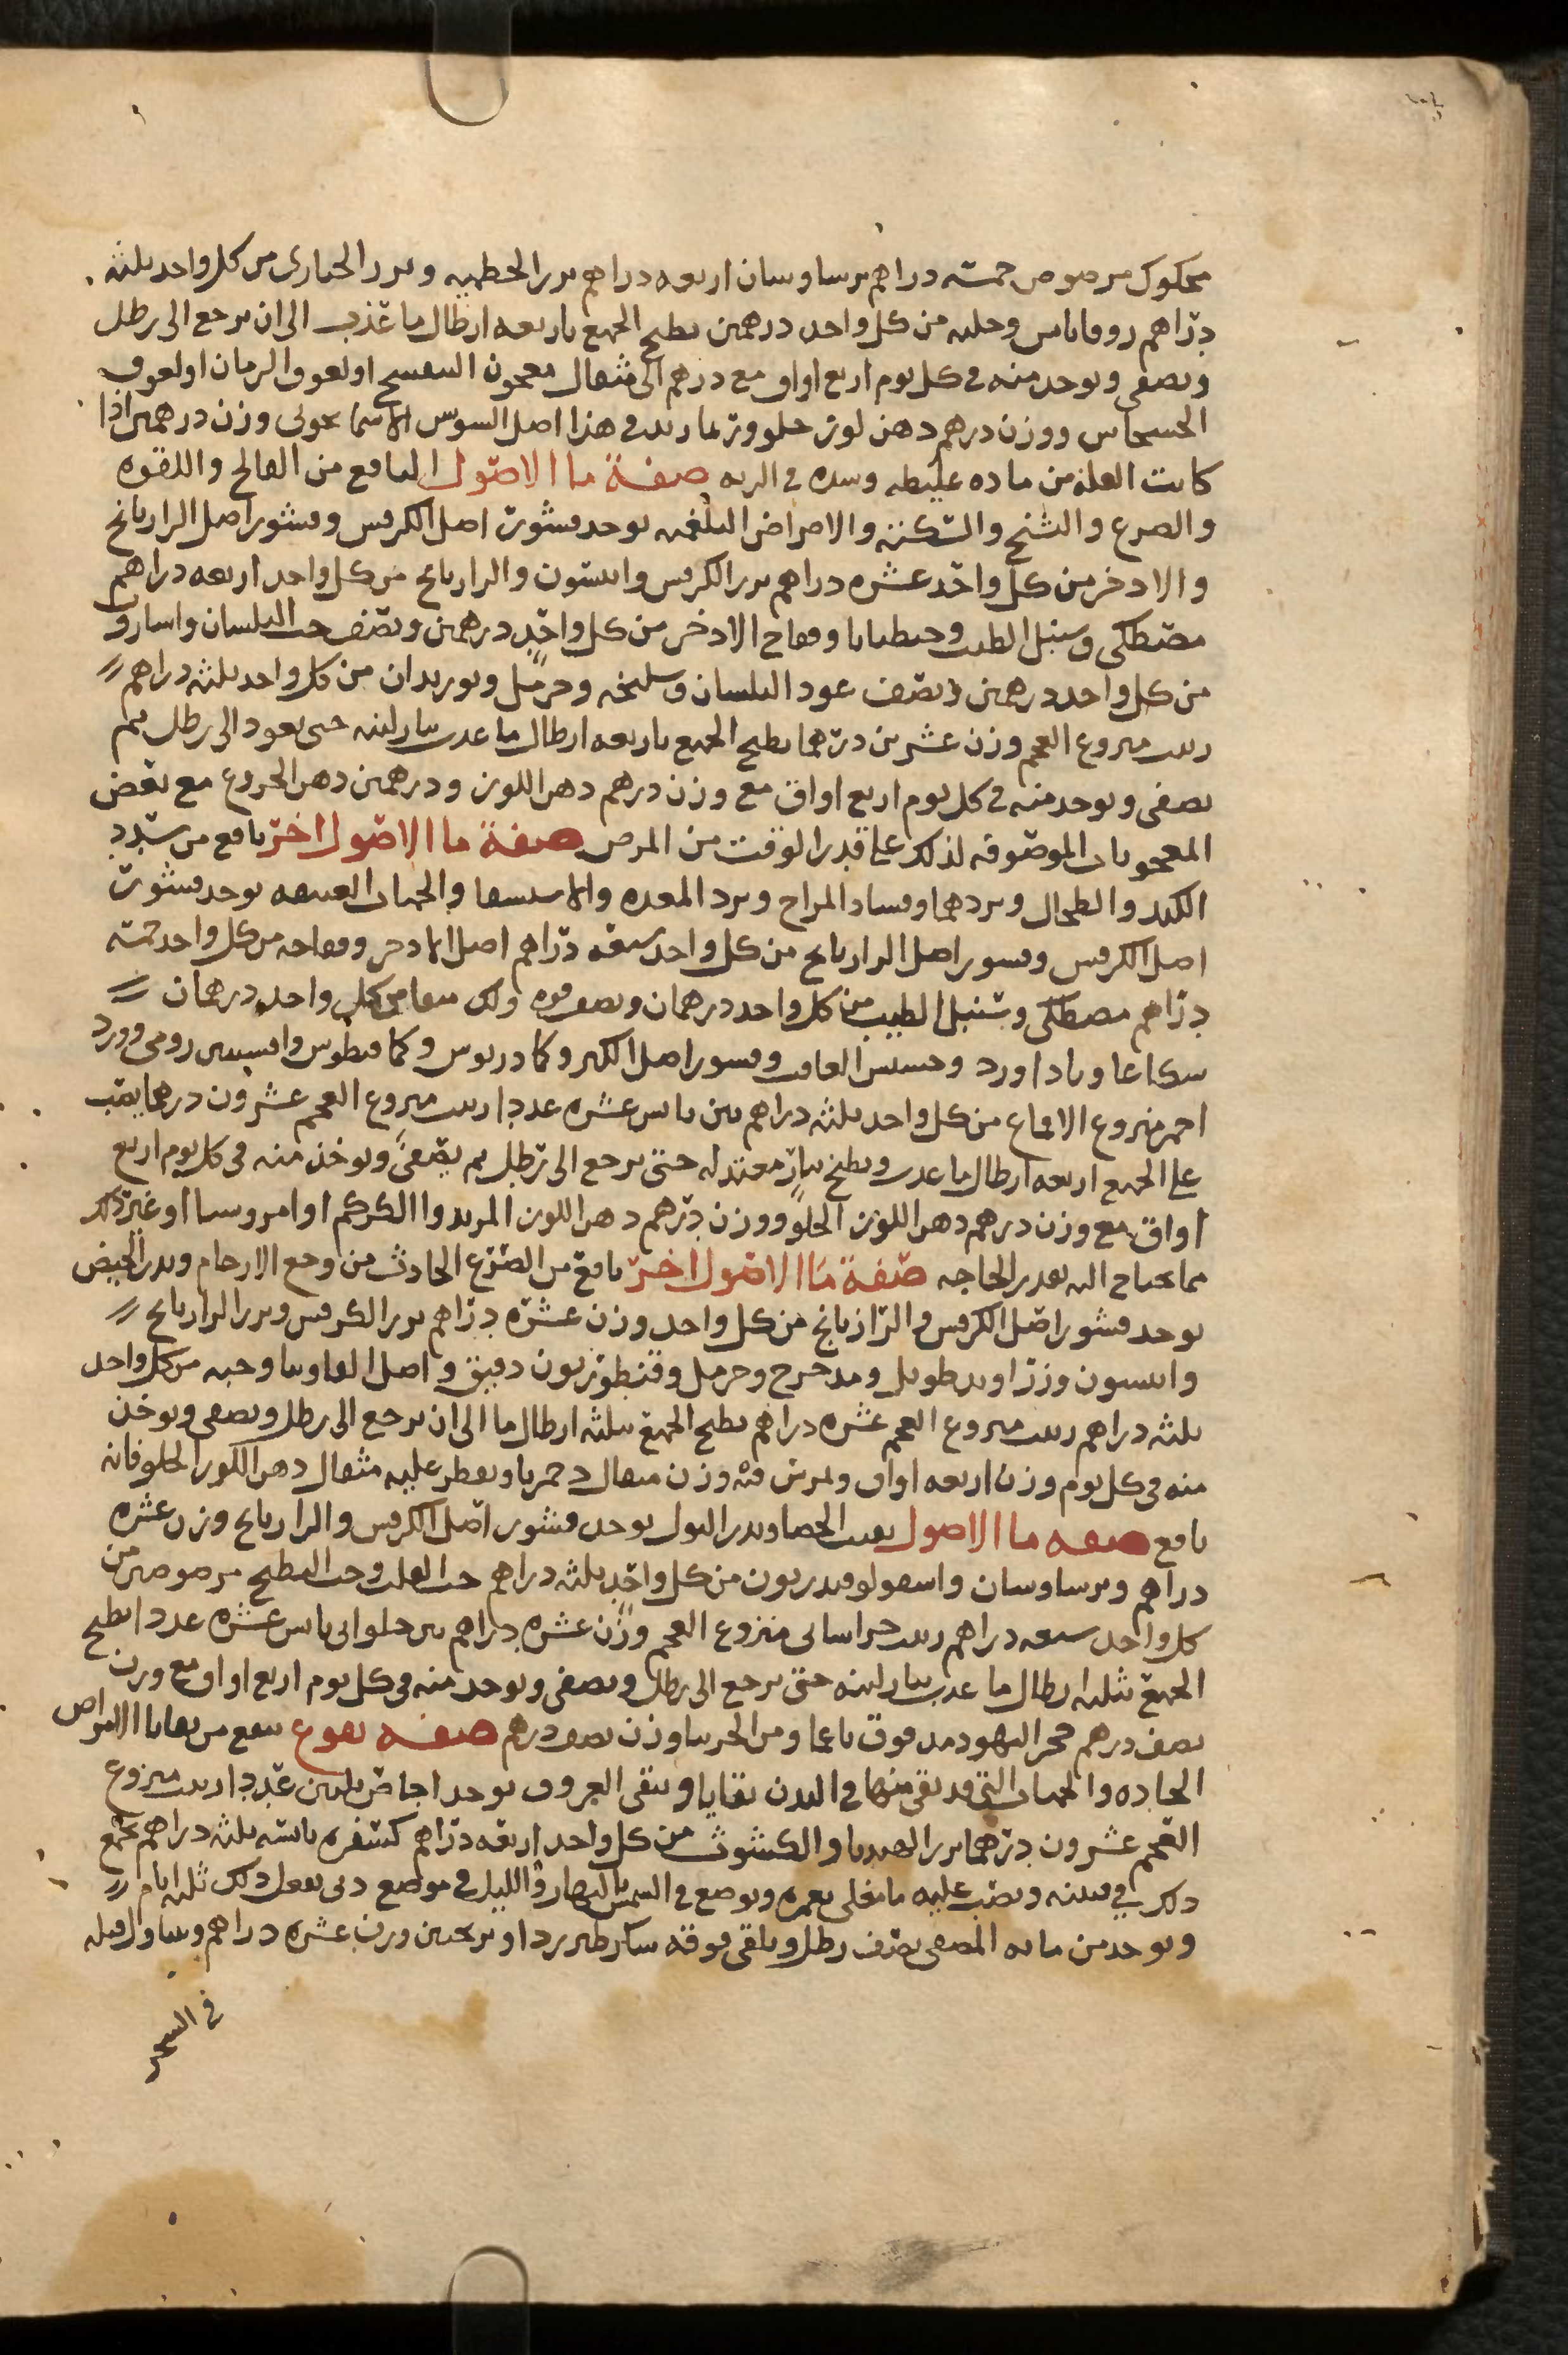 محكوك مرضوض خمسة دراهم برساوسان اربعه دراهم بزر الخطميه وبزر الخبازى من كل واحد ثلثه
دراهم زوفا يابس وحلبه من كل واحد درهمين يطبخ الجميع باربعه ارطال ما عذب الى ان يرجع الى رطل
ويصفى ويوخذ منه في كل يوم اربع اواق مع درهم الى مثقال معجون البنفسج او لعوق الرمان او لعوق
الخشخاش ووزن درهم دهن لوز حلو وربما زيد في هذا اصل السوس الاسمانجونى وزن درهمين اذا
كانت العله من ماده غليظه وسده في الريه صفة ما الاصول النافع من الفالج واللقوه
والصرع والتشنج والسكته والامراض البلغميه يوخذ قشور اصل الكرفس وقشور اصل الرازيانج
والاذخر من كل واحد عشره دراهم بزر الكرفس وانيسون والرازيانج من كل واحد اربعه دراهم
مصطكى وسنبل الطيب وجنطيانا وفقاح الاذخر من كل واحد درهمين ونصف حب البلسان واسارون
من كل واحد درهمين ونصف عود البلسان وسليخه وحرمل وبوزيدان من كل واحد ثلثه دراهم
زبيب منزوع العجم وزن عشرين درهما يطبخ الجميع باربعه ارطال ما عذب بنار لينه حتى يعود الى رطل ثم
يصفى ويوخذ منه في كل يوم اربع اواق مع وزن درهم دهن اللوز ودرهمين دهن الخروع مع بعض
المعجونات الموصوفه لذلك على قدر الوقت من المرض صفة ما الاصول اخر نافع من سدد
الكبد والطحال وبردهما وفساد المزاج وبرد المعده والاستسقا والحميات العتيقه يوخذ قشور
اصل الكرفس وقشور اصل الرازيانج من كل واحد سبعه دراهم اصل الاذخر وفقاحه من كل واحد خمسه
دراهم مصطكى وسنبل الطيب من كل واحد درهمان ونصف فوه ولك منقا من كل واحد درهمان
شكاعا وباداورد وحشيش الغافت وقشور اصل الكبر وكمادريوس وكمافيطوس وافسنتين رومى وورد
احمر منزوع الاقماع من كل واحد ثلثه دراهم تين يابس عشره عددا زبيب منزوع العجم عشرون درهما يصب
على الجميع اربعه ارطال ما عذب ويطبخ بنار معتدله حتى يرجع الى رطل ثم يصفى ويوخذ منه فى كل يوم اربع
اواق مع وزن درهم دهن اللوز الحلو ووزن درهم دهن اللوز المر ودوا الكركم او امروسيا او غير ذلك
مما يحتاج اليه بقدر الحاجه صفة ما الاصول اخر نافع من الصرع الحادث من وجع الارحام ويدر الحيض
يوخذ قشور اصل الكرفس والرازيانج من كل واحد وزن عشره دراهم بزر الكرفس وبزر الرازيانج
وانيسون وزراوند طويل ومدحرج وحرمل وقنطوريون دقيق واصل الفاوينا وحبه من كل واحد
ثلثه دراهم زبيب منزوع العجم عشره دراهم يطبخ الجميع بثلثه ارطال ما الى ان يرجع الى رطل ويصفى ويوخذ
منه فى كل يوم وزن اربعه اواق ويمرس فيه وزن مثقال دحمرثا ويقطر عليه مثقال دهن اللوز الحلو فانه
نافع صفه ما الاصول يفتت الحصا ويدر البول يوخذ قشور اصل الكرفس والرازيانج وزن عشره
دراهم وبرساوسان واسقولوقندريون من كل واحد ثلثه دراهم حب القلت وحب البطيخ مرضوضين من
كل واحد سبعه دراهم زبيب خراسانى منزوع العجم وزن عشره دراهم تين حلوانى يابس عشره عددا يطبخ
الجميع بثلثه ارطال ما عذب بنار لينه حتى يرجع الى رطل ويصفى ويوخذ منه فى كل يوم اربع اواق مع وزن
نصف درهم حجر اليهود مدقوق ناعما ومن الحرينا وزن نصف درهم صفه نقوع ينفع من بقايا الامراض
الحاده والحميات التى قد بقى منها فى البدن بقايا وينقى العروق يوخذ اجاص ثلثين عددا زبيب منزوع
العجم عشرون درهما بزر الهندبا والكشوث من كل واحد اربعه دراهم كسفره يابسه ثلثه دراهم يجمع
ذلك في قنينه ويصب عليه ما مغلى بغمره ويوضع فى الشمس بالنهار والليل فى موضع دفى يفعل ذلك ثلثه ايام
ويوخذ من مايه المصفى نصف رطل ويلقى فوقه سكر طبرزد او ترنجبين وزن عشره دراهم ويتناول قبله
في السحر